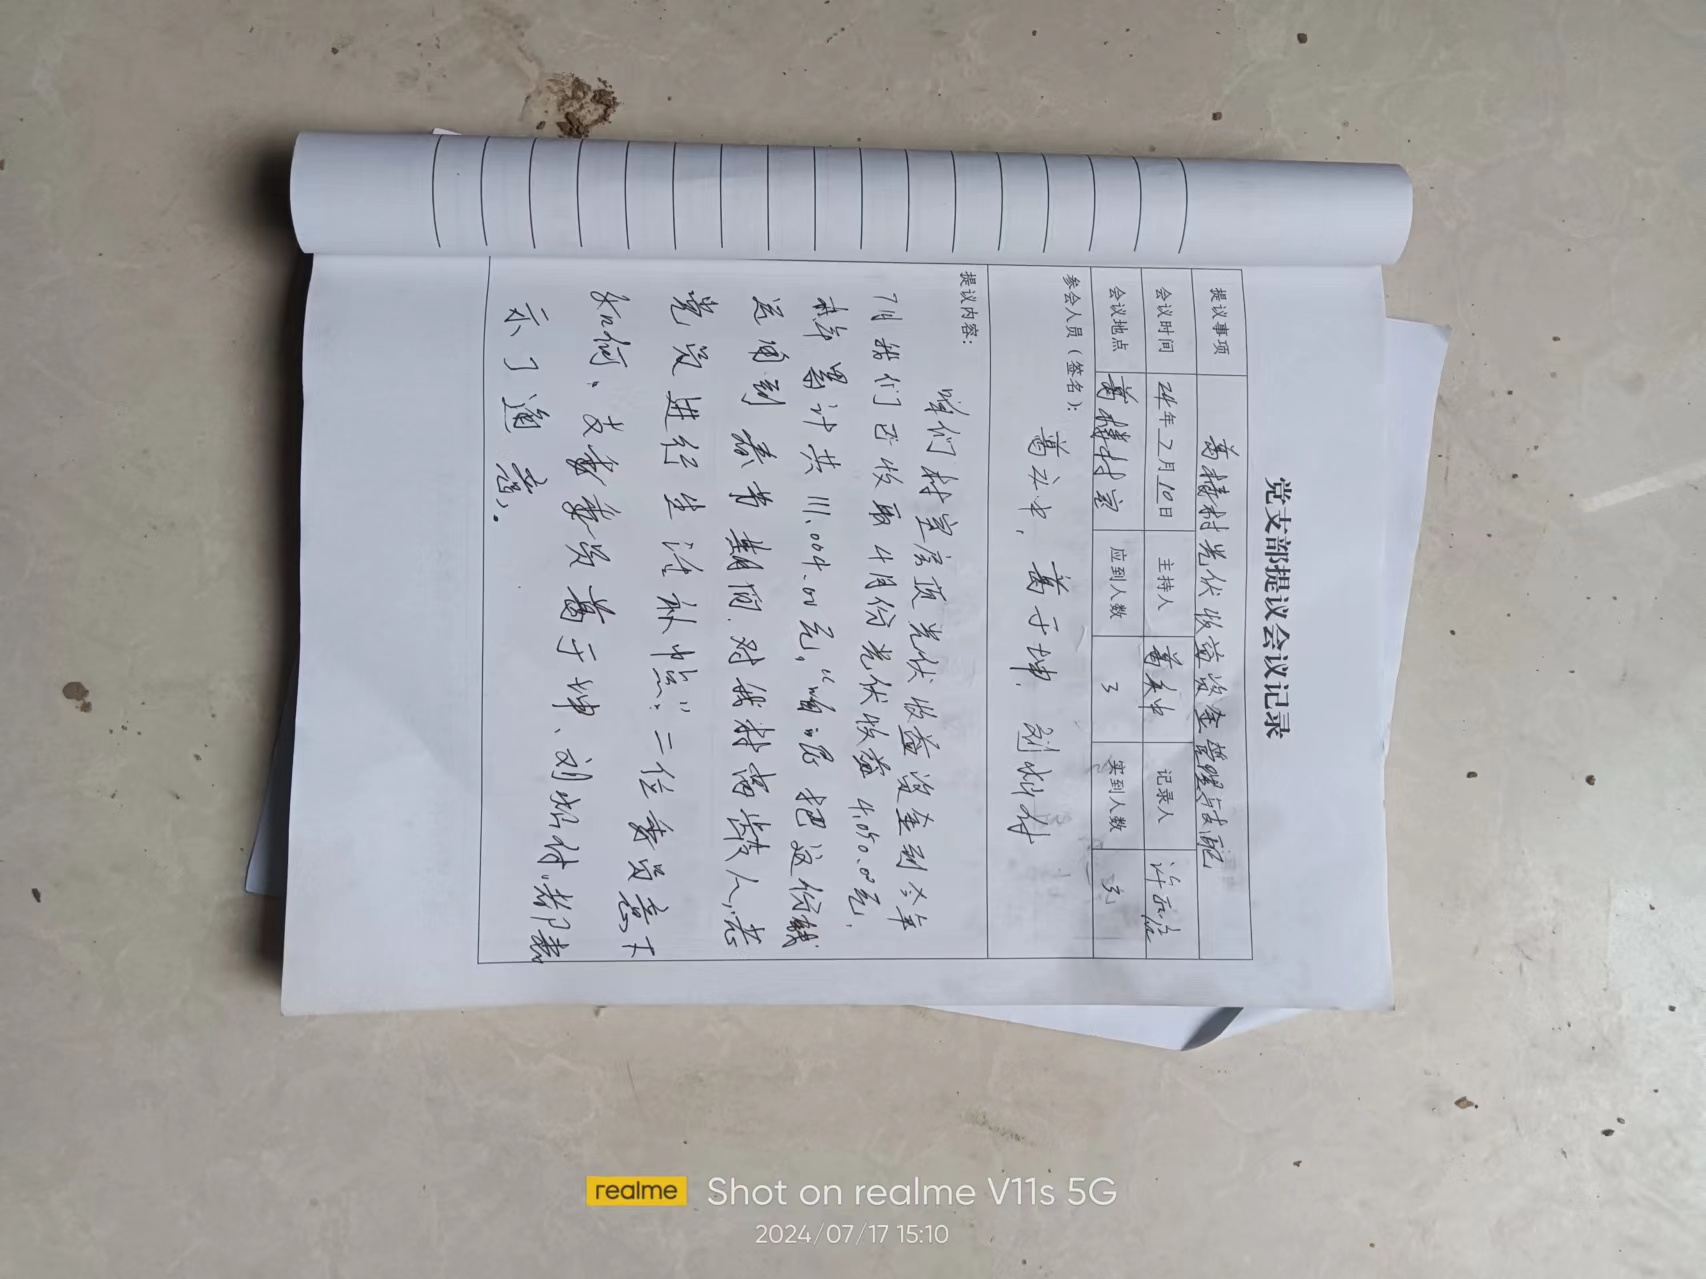 党支部提议会议记录
提议事项 葛楼村光伏收益资金管理与支配
会议时间 24年7月10日 主持人 葛永中 记录人
会议地点 葛楼村室 应到人数 3 实到人数 3
参会人员（签名）：
葛永中、葛于坤、刘
提议内容：
咱们村室房顶光伏收益资金到今年
7月 我们已收取4月份光伏收益4,050.00元，
累计共111,004.00元，
把这份钱
运用到春节期间，对我村高龄人,老
党员进行生活补
如何、支委委员葛于坤、刘 村，都表
二位委员意下
示了通意》。
realme Shot on realme V11s 5G
2024/07/17 15:10